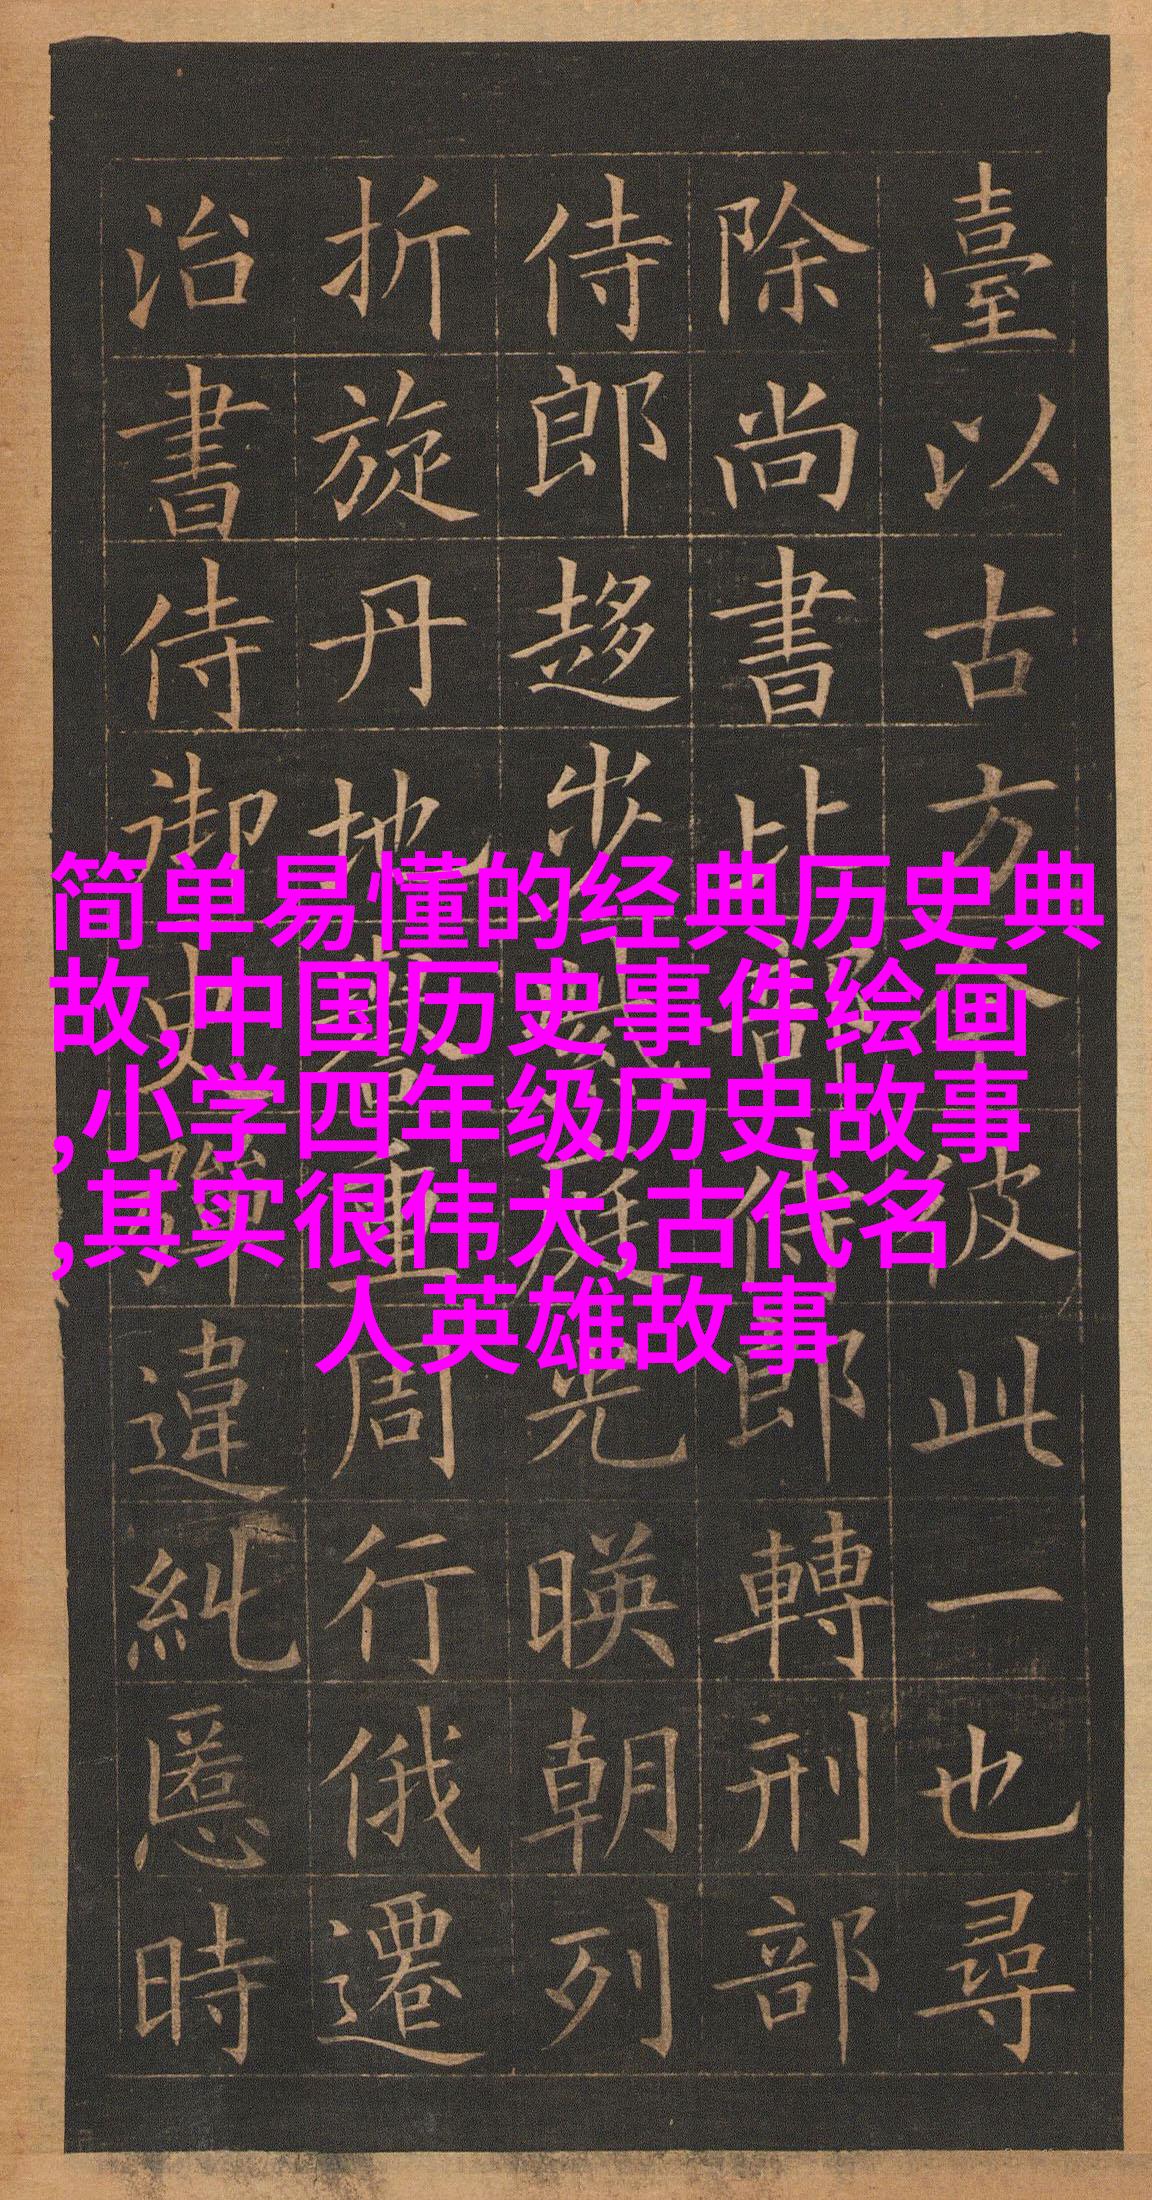 臺以古方今彼此一也尋
除尚書比部侍郎轉刑部
侍郎趍步紫庭光暎朝列
折旋丹地譽重周行俄遷
治書侍御史彈違糾慝時
简单易懂的经典历史典
故,中国历史事件绘画
,小学四年级历史故事
,其实很伟大,古代名
人英雄故事